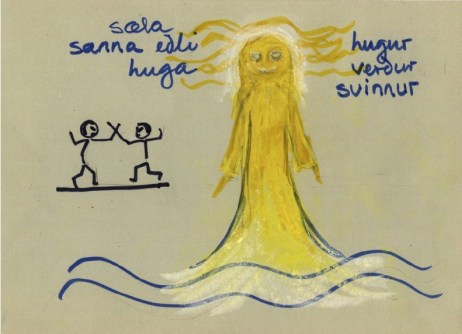 sæla
sanna eðli
huga
hugur
verður
svinnur